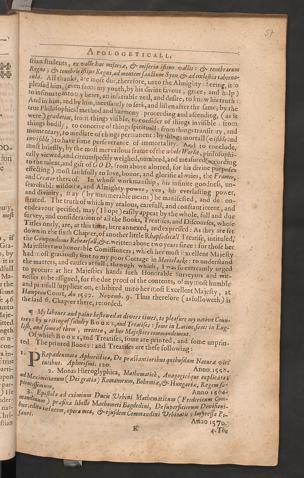 APOLOGETICALL,
stian students, ex valle hac miseriæ, & miseria istius vallis: & tenebrarum
Regno; & tenebris istius Regni, ad montem sanctum Syon & ad cœlestia taberna-
cula. All thanks, are most due, therefore, vnto the Almighty: seeing, it so
pleased him, (euen from my youth, by his diuine fauour, grace, and helpe)
to insinuate into my heart, an insatiable zeal, and desire, to know his truth:
And in him, and by him, incessantly to seek, and listen after the same; by the
true Philosophicall method and harmony: proceeding and ascending, (as it
were) gradatim, from things visible, to consider of things inuisible: from
things bodily, to conceiue of things spirituall: from things transitory, and
momentany, to meditate of things permanent: by things mortall (visible and
inuisible) to haue some perseuerance of immortality. And to conclude,
most briefly, by the most meruailous frame of the whole World, philosophi-
cally viewed, and circumspectly weighed, numbred, and measured (according
to the talent, and gift of GOD, from aboue allotted, for his diuine purposes
effecting) most faithfully to loue, honor, and glorifie alwaies, the Framer,
and Creator thereof. In whose workmanship, his infinite goodness, vn-
searchable wisdome, and Almighty power, yea, his euerlasting power,
and diuinity, may (by innumerable meanes) be manifested, and de mon-
strated. The truth of which my zealous, carefull, and constant intent, and
endeauour specified, may (I hope) easily appear by the whole, full and due
suruey, and consideration of all the Books, Treatises, and Discourses, whose
Titles onely, are, at this time, here annexed, and expressed: As they are set
down in the sixth Chapter, of another little Rhapsodicall Treatise, intituled,
the Compendious Rehearsall, &c. written: aboue two years since: for those her
Majesties two honorable Comissioners; which her most excellent Majesty,
had most graciously sent to my poor Cottage in Mortclake: to vnderstand
the matter, and causes at full; through which, I was so extreamly vrged
to procure at her Majesties hands such Honorable Surueyors and wit-
nesses to be assigned, for the due proof of the contents, of my most humble
and pittifull supplication, exhibited vnto her most Excellent Majesty, at
Hampton Court, An. 1592. Novemb. 9. Thus therefore (as followeth) is
the said 6. Chapter there, recorded.
¶ My labours and paines bestowed at diuers times, to pleasure my natiue Coun-
trey: by writing of sundry Books, and Treatises: some in Latine, some in Eng-
lish, and some of them, written, at her Majesties commandement.
Of which Books, and Treatises, some are printed, and some vnprin-
ted. The printed Books: and Treatises are these following:
1. PRopædeumata Aphoristica, De præstantioribus quibusdam Naturæ vir-
tutibus. Aphorismi. 120. Anno. 1558.
2. Monas Hieroglyphica, Mathematicè, Anagogicèque explicata:
ad Maximilianum (Dei gratia) Romanorum, Bohemiæ, & Hungariæ, Regem sa-
pientissimum. Anno 1564.
3. Epistola ad eximium Ducis Vrbini Mathematicum (Fredericum Com-
mandinum) præfixa libello Machometi Bagdedini, De superficierum Diuisioni-
bus; edito in lucem, opera mea, & ejusdem Commandini Vrbinatis: Impressa Pi-
sauri. Anno 1570.
K
4. The